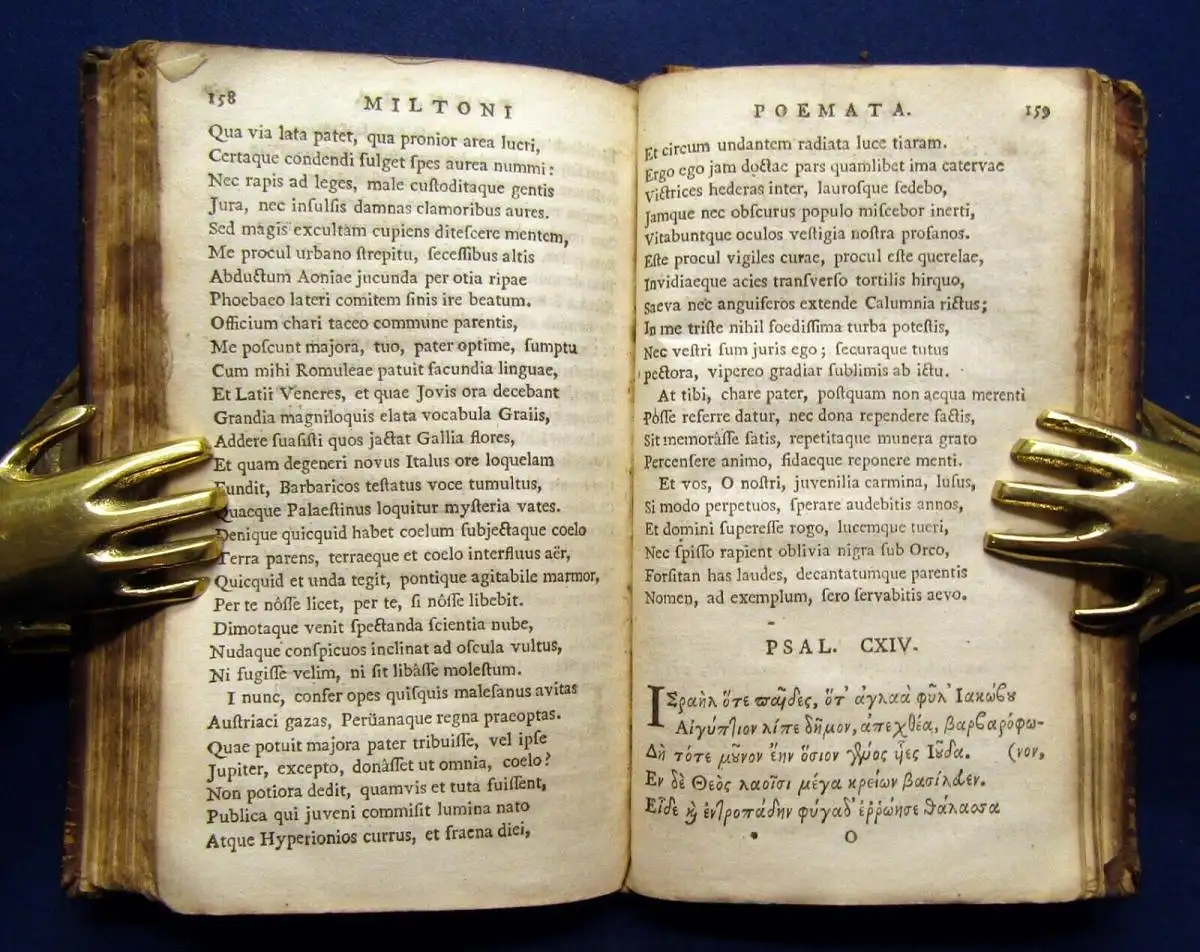 158 MILTONI
Qua via lata patet, qua pronior area lucri,
Certaque condendi fulget ſpes aurea nummi:
Nec rapis ad leges, male cuſtoditaque gentis
Jura, nec inſulſis damnas clamoribus aures.
Sed magis excultam cupiens diteſcere mentem,
Me procul urbano ſtrepitu, ſeceſſibus altis
Abductum Aoniae jucunda per otia ripae
Phoebaeo lateri comitem ſinis ire beatum.
Officium chari taceo commune parentis,
Me poſcunt majora, tuo, pater optime, ſumptu
Cum mihi Romuleae patuit facundia linguae,
Et Latii Veneres, et quae Jovis ora decebant
Grandia magniloquis elata vocabula Graiis,
Addere ſuaſiſti quos jactat Gallia flores,
Et quam degeneri novus Italus ore loquelam
Fundit, Barbaricos teſtatus voce tumultus,
Quaeque Palaeſtinus loquitur myſteria vates.
Denique quicquid habet coelum ſubjectaque coelo
Terra parens, terraeque et coelo interfluus aër,
Quicquid et unda tegit, pontique agitabile marmor,
Per te nôſſe licet, per te, ſi nôſſe libebit.
Dimotaque venit ſpectanda ſcientia nube,
Nudaque conſpicuos inclinat ad oſcula vultus,
Ni fugiſſe velim, ni ſit libâſſe moleſtum.
I nunc, confer opes quiſquis maleſanus avitas
Auſtriaci gazas, Perüanaque regna praeoptas.
Quae potuit majora pater tribuiſſe, vel ipſe
Jupiter, excepto, donâſſet ut omnia, coelo?
Non potiora dedit, quamvis et tuta fuiſſent,
Publica qui juveni commiſit lumina nato
Atque Hyperionios currus, et fraena diei,
POEMATA. 159
Et circum undantem radiata luce tiaram.
Ergo ego jam doctae pars quamlibet ima catervae
Victrices hederas inter, lauroſque ſedebo,
Jamque nec obſcurus populo miſcebor inerti,
Vitabuntque oculos veſtigia noſtra profanos.
Eſte procul vigiles curae, procul eſte querelae,
Invidiaeque acies tranſverſo tortilis hirquo,
Saeva nec anguiferos extende Calumnia rictus;
In me triſte nihil foediſſima turba poteſtis,
Nec veſtri ſum juris ego; ſecuraque tutus
pectora, vipereo gradiar ſublimis ab ictu.
At tibi, chare pater, poſtquam non aequa merenti
Poſſe referre datur, nec dona rependere factis,
Sit memorâſſe ſatis, repetitaque munera grato
Percenſere animo, fidaeque reponere menti.
Et vos, O noſtri, juvenilia carmina, luſus,
Si modo perpetuos, ſperare audebitis annos,
Et domini ſupereſſe rogo, lucemque tueri,
Nec ſpiſſo rapient oblivia nigra ſub Orco,
Forſitan has laudes, decantatumque parentis
Nomen, ad exemplum, ſero ſervabitis aevo.
PSAL. CXIV.
ΙΣραὴλ ὅτε παῖδες, ὅτ' ἀγλαὰ φῦλ' Ιακώβȣ
Αἰγύπτιον λίπε δῆμον, ἀπεχθέα, βαρβαρόφω-
Δὴ τότε μοῦνον ἔην ὅσιον γένος ἧες Ιοῦδα. (νον,
Εν δὲ Θεὸς λαοῖσι μέγα κρείων βασίλευεν.
Εἶδε καὶ ἐντροπάδην φύγαδ' ἐῤῥώησε θάλασσα
O